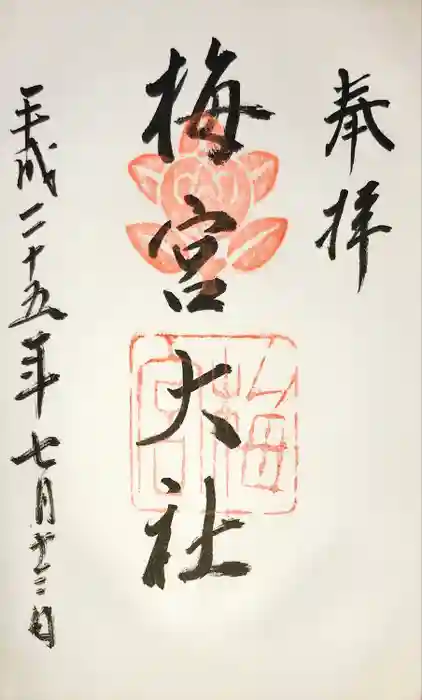 奉拝
梅宮大社
梅宮
平成二十五年七月十三日